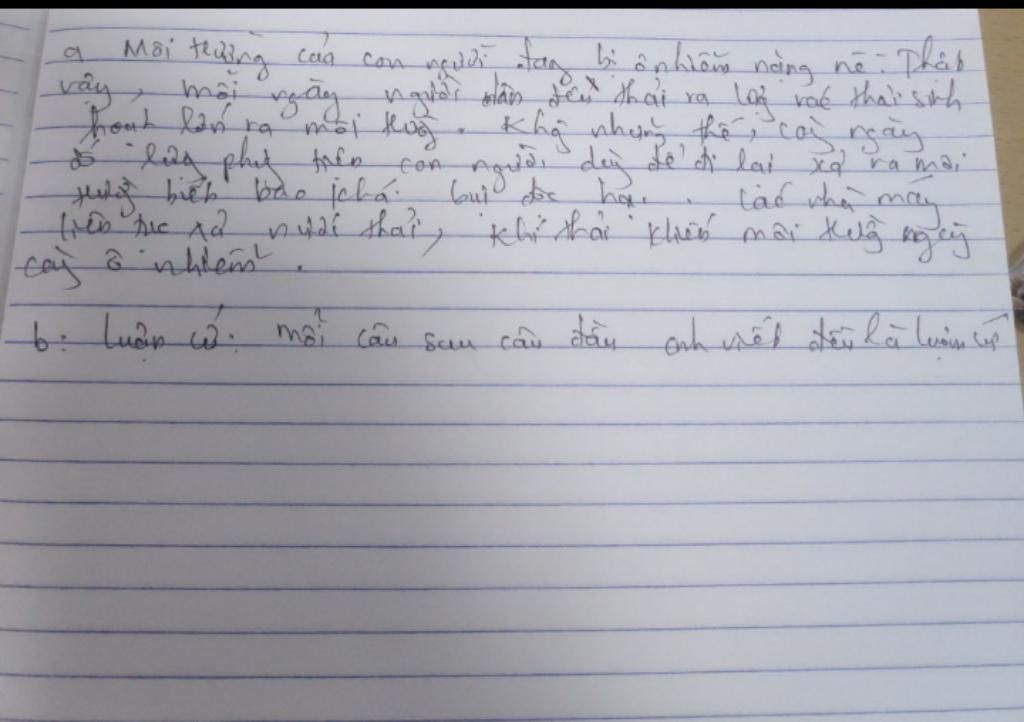 a Môi trường của con người đang bị ô nhiễm nặng nề. Thật
vậy, mỗi ngày người dân đều thải ra lượg rác thải sinh
hoạt lớn ra môi trườg. Khg những thế, càg ngày
số lượg phươg tiện con người dùg để đi lại xả ra môi
trườg biết bao khói bụi độc hại. Các nhà máy
liên tục xả nước thải, khí thải khiến môi trườg ngày
càg ô nhiễm.
b: Luận cứ: mỗi câu sau câu đầu anh viết đều là luận cứ